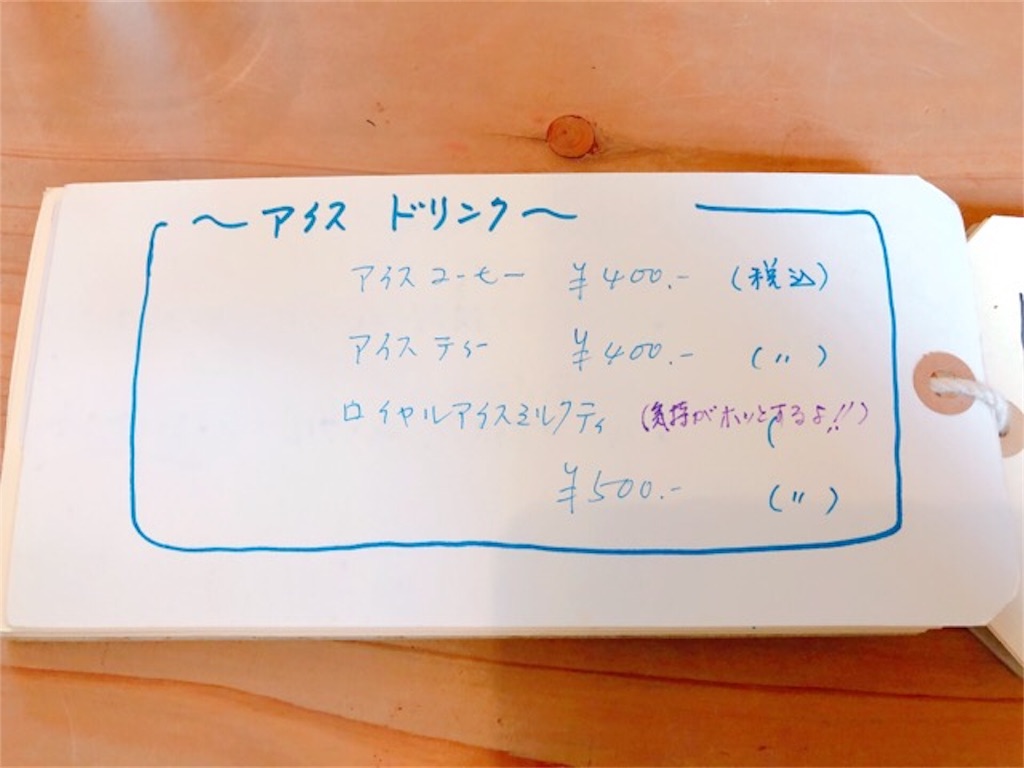 ～アイス ドリンク～
アイスコーヒー ¥400.- (税込)
アイスティー ¥400.- (〃)
ロイヤルアイスミルクティ (気持がホッとするよ!!)
¥500.- (〃)